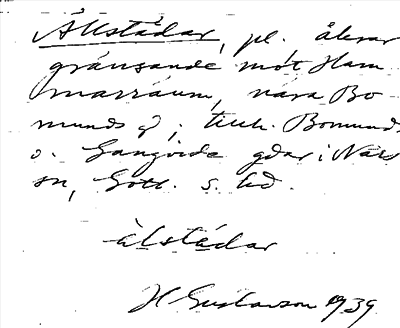 Ållstådar, pl., åkrar
gränsande mot Ham
marråum, nära Bo
munds gd; tillh. Bomunds
o. Gangvide gdar i När
sn, Gotl. s. hd.
ålstádar
H Gustavson 1939